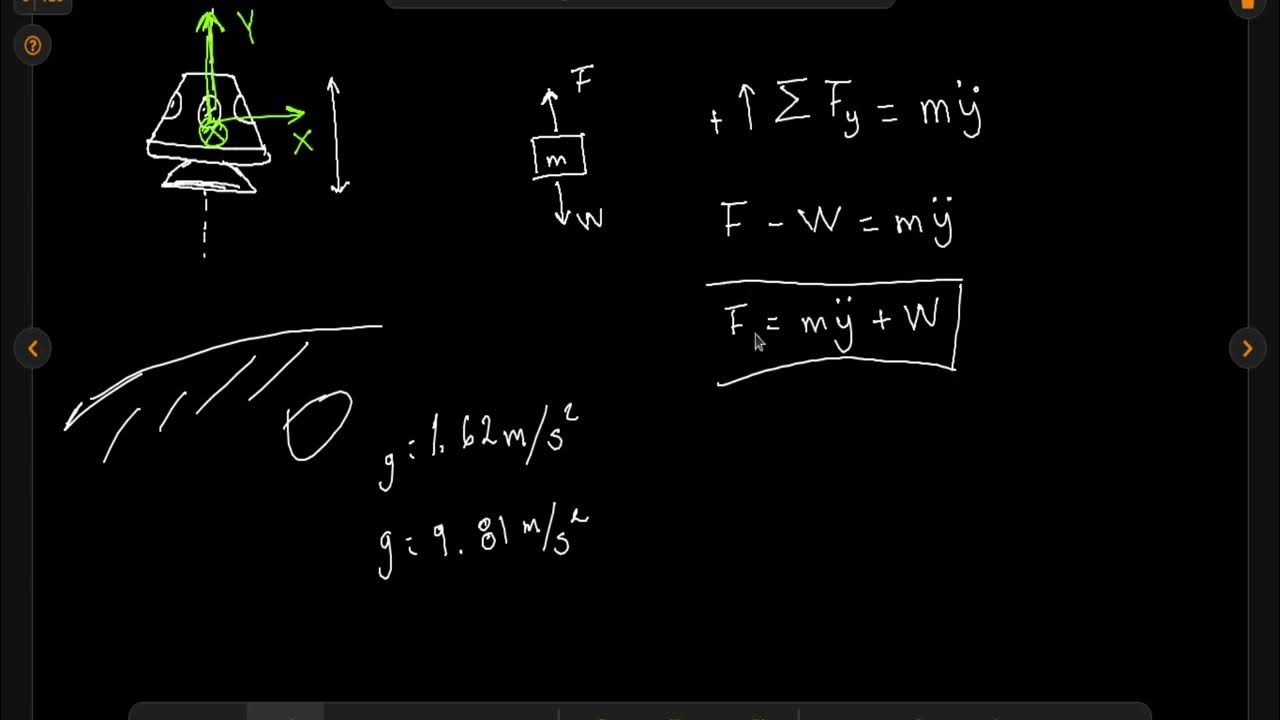 Y
X
F
m
W
+ ↑ Σ Fy = mÿ
F - W = mÿ
F = mÿ + W
g = 1.62 m/s²
g = 9.81 m/s²